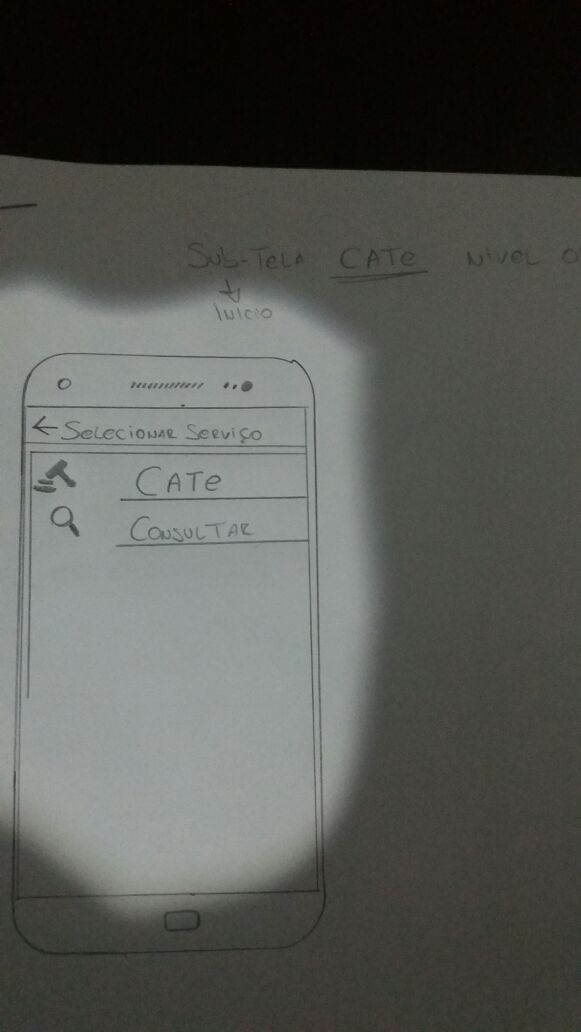 Sub-Tela CATe Nivel 0
Inicio
Selecionar Serviço
CATe
Consultar